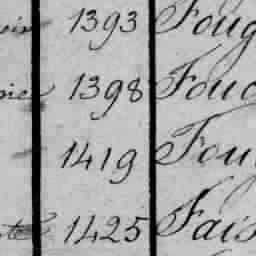 1393 Foug
1398 Fouc
1419 Fou
1425 Fais